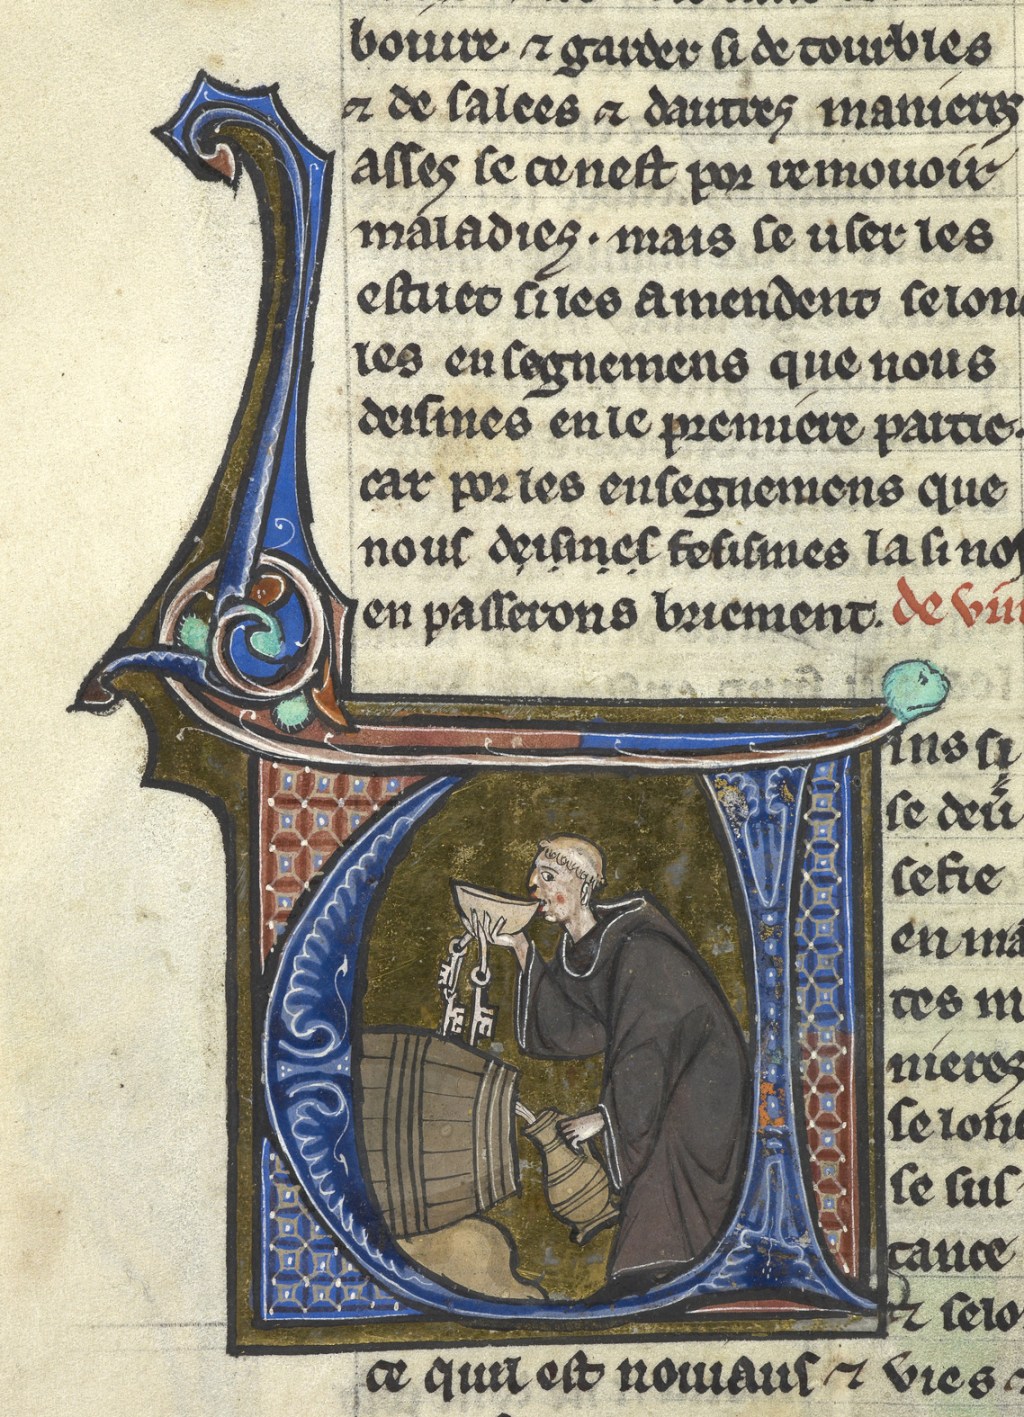 boiure· ⁊ garder si de tourbles
⁊ de salees ⁊ dautres manieres
asses se ce nest por remouoir
maladies· mais se user les
estuet si les amendent selonc
les ensegnemens que nous
desimes en le premiere partie·
car por les ensegnemens que
nous desimes fesismes la si nos
en passerons briement· de vin
ins si
se deu
sefie
en ma
tes m
nieres
se lonc
se sus
tance
⁊ selo
ce quil est nouiaus ⁊ vies ⁊